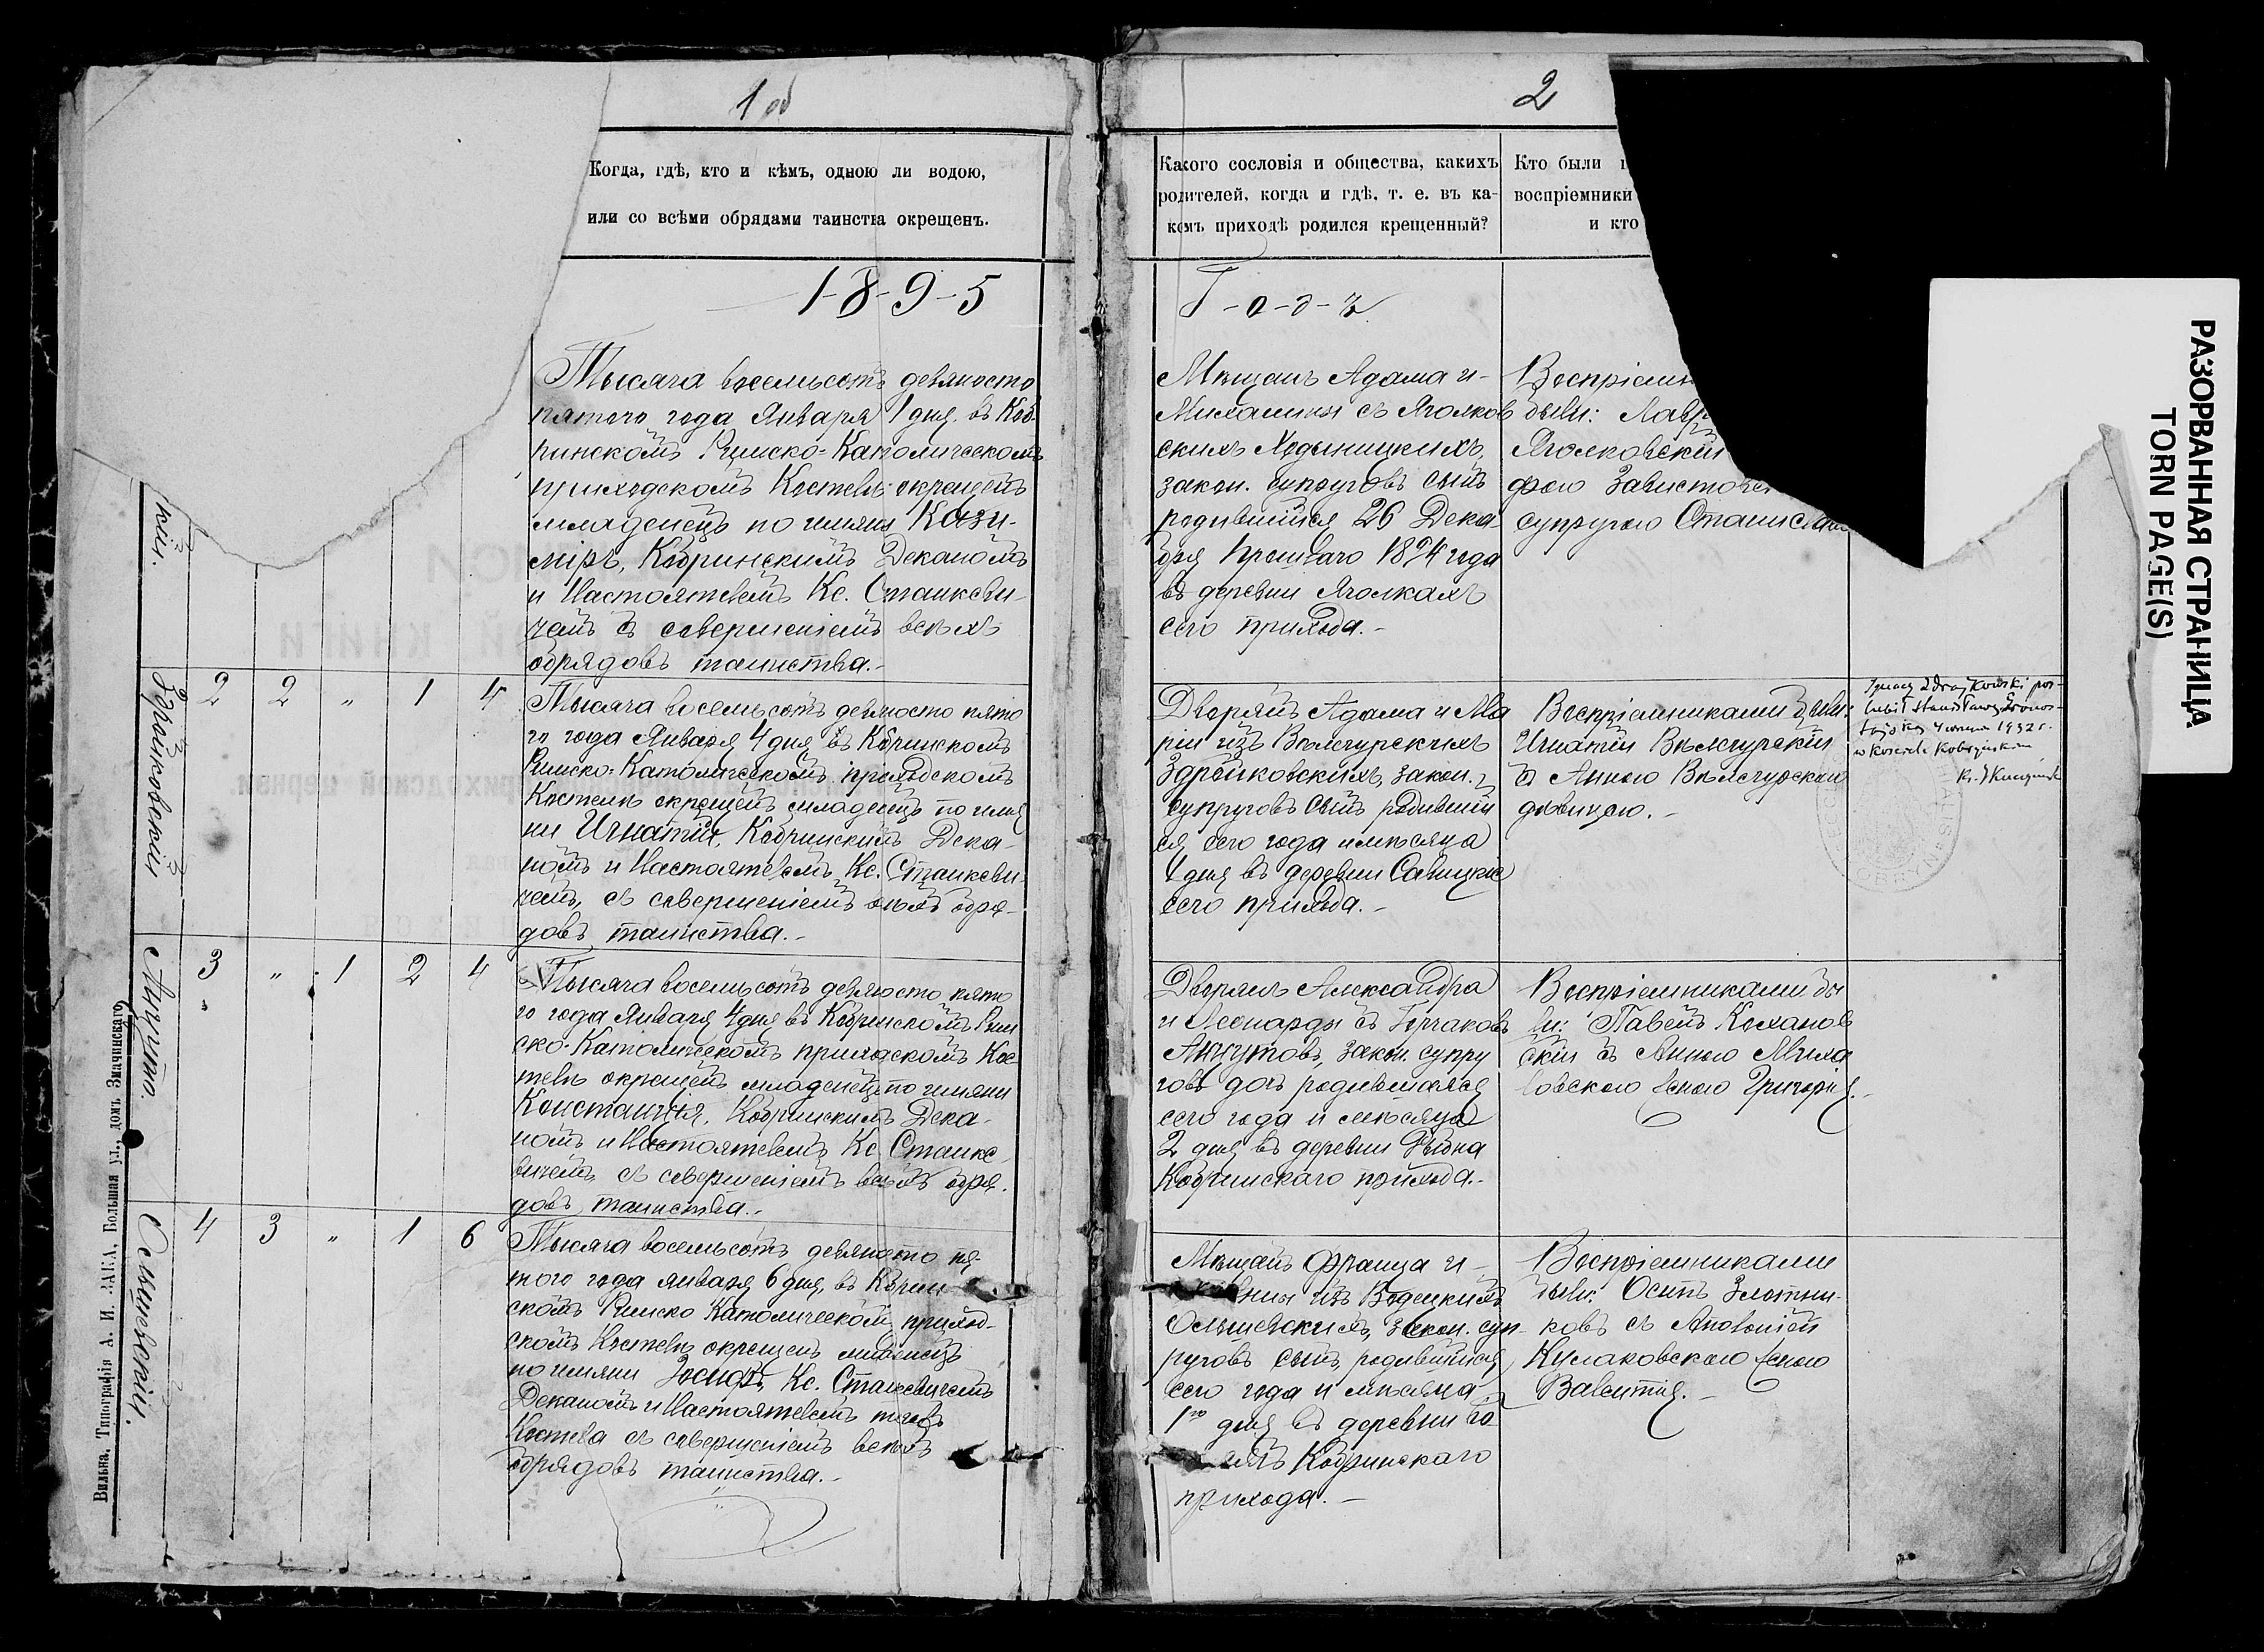 1 об
Когда, гдѣ, кто и кѣмъ, одною ли водою,
или со всѣми обрядами таинства окрещенъ.
1-8-9-5
Тысяча восемьсотъ девяносто
пятого года Января 1 дня въ Коб-
ринскомъ Римско-Католическомъ
приходскомъ Костелѣ окрещенъ
младенецъ по имяни Кази-
міръ, Кобринскимъ Деканомъ
и Настоятелемъ Кс. Станкеви-
чемъ съ совершеніемъ всѣхъ
обрядовъ таинства.-
кій.
Здройковскій
2 2 „ 1 4
Тысяча восемьсотъ девяносто пято
го года Января 4 дня въ Кобринскомъ
Римско-Католическомъ приходскомъ
Костелѣ окрещенъ младенецъ по имя
ни Игнатій, Кобринскимъ Дека-
номъ и Настоятелемъ Кс. Станкеви-
чемъ, съ совершеніемъ всѣхъ обря-
довъ таинства.-
Анцуто.
3 „ 1 2 4
Тысяча восемьсотъ девяносто пято
го года Января 4 дня въ Кобринскомъ Рим
ско-Католическомъ приходскомъ Кос
телѣ окрещенъ младенецъ по имяни
Констанція, Кобринскимъ Дека-
номъ и Настоятелемъ Кс. Станке-
вичемъ, съ совершеніемъ всѣхъ обря-
довъ таинства.-
Ольшевскій.
4 3 „ 1 6
Тысяча восемьсотъ девяносто пя-
того года января 6 дня, въ Кобрин
скомъ Римско Католическомъ приход-
скомъ Костелѣ окрещенъ младенецъ
по имяни Іосифъ, Кс. Станкевичемъ
Деканомъ и Настоятелемъ тогожъ
Костела съ совершеніемъ всѣхъ
обрядовъ таинства.-
Вильна, Типографія А. И. ЗАКА, Большая ул., домъ Значинскаго
2
Какого сословія и общества, какихъ
родителей, когда и гдѣ, т. е. въ ка-
комъ приходѣ родился крещенный?
Кто были
воспріемники
и кто
Г-о-д-ъ
Мѣщанъ Адама и-
Михалины съ Яголков
скихъ Ходыницкихъ,
закон. супруговъ сынъ
родившійся 26 Дека-
бря прошлаго 1894 года
въ деревни Яголкахъ
сего прихода.-
Воспріемн
были: Лавр
Яголковскій
супругою Станислав
Дворянъ Адама и Ма
ріи изъ Вѣлегурскихъ
Здройковскихъ, закон.
супруговъ сынъ родившій
ся сего года и мѣсяца
1 дня въ деревни Савицкіе
сего прихода.-
Воспріемниками были:
Игнатій Вѣлегурскій
съ Анною Вѣлегурскою
дѣвицею.-
1932 r.
Дворянъ Александра
и Леонарды съ Горчаковъ
Анцутовъ, закон. супру
говъ дочь родившаяся
сего года и мѣсяца
2 дня въ деревни
Кобринскаго прихода.-
Воспріемниками бы
ли: Павелъ Коханов
скій съ Анною Миха
ловскою женою Григорія.-
Мѣщанъ Франца и-
изъ
Ольшевскихъ, закон. суп-
руговъ сынъ, родившійся
сего года и мѣсяца
1го дня въ деревни
Кобринскаго
прихода.-
Воспріемниками
были: Осипъ Злотни-
ковъ съ Аполоніей
Кулаковскою женою
Валентія.-
РАЗОРВАННАЯ СТРАНИЦА
TORN PAGE(S)